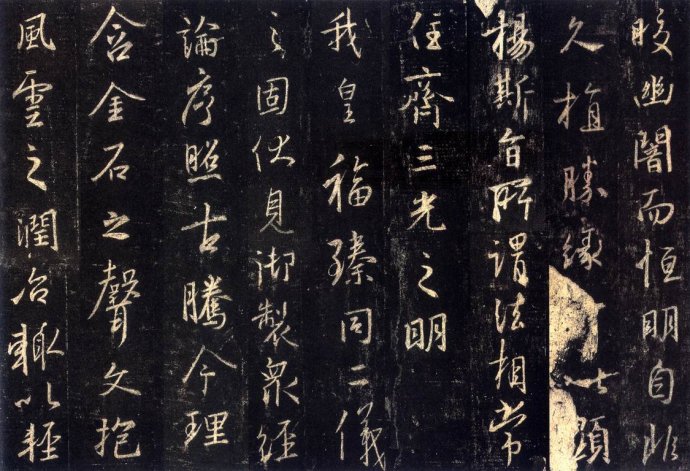 皎幽闇而恒明自非
久植勝緣何以顯
揚斯旨所謂法相常
住齊三光之明
我皇福臻同二儀
之固伏見御製眾經
論序照古騰今理
含金石之聲文抱
風雲之潤治輒以輕